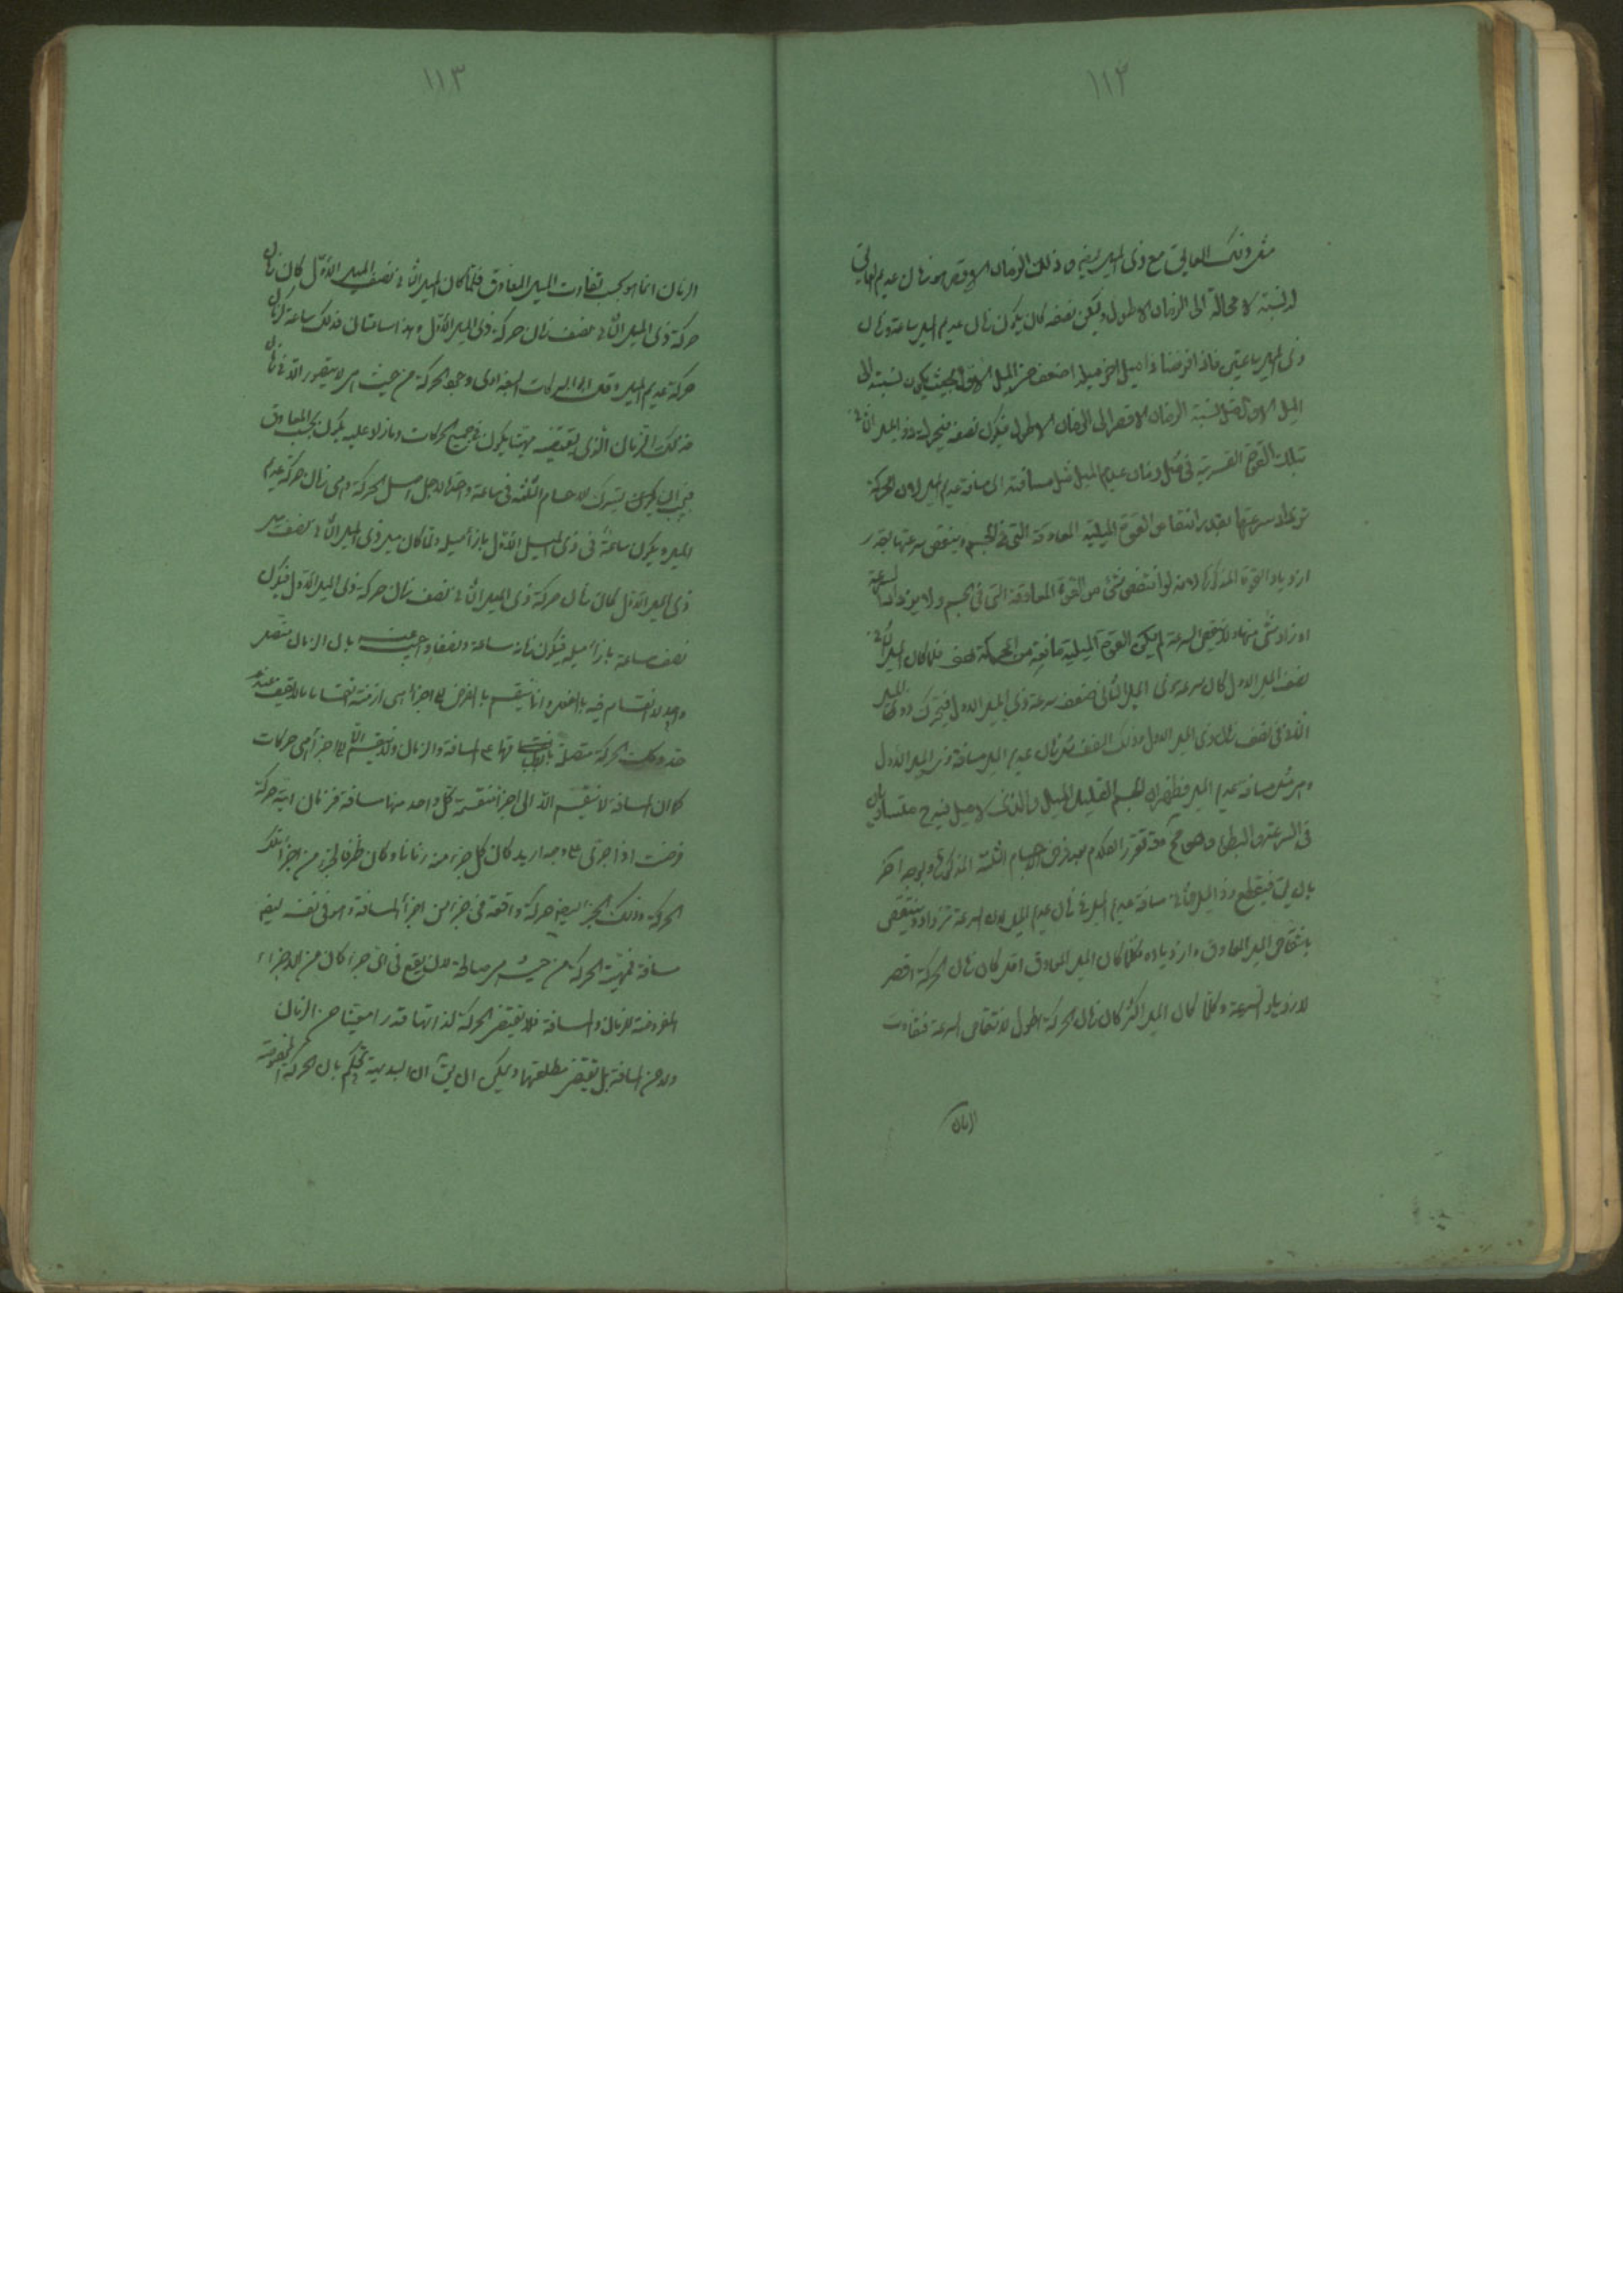 ١١٢
مثل ذلك العايق مع ذى الميل فى ذلك الزمان الاقصر هو زمان عديم العايق
له نسبة لا محالة الى الزمان الاطول وليكن نصفه كان يكون زمان عديم الميل ساعة وزمان
ذى الميل ساعتين فاذا فرضنا ذا ميل اخر ميله اضعف من الميل الاول بحيث يكون نسبته الى
الميل الاول مثل نسبة الزمان الاقصر الى الزمان الاطول فيكون نصفه فيتحرك ذو الميل الثانى
بتلك القوة القسرية فى مثل زمان عديم الميل مثل مسافته اى مسافة عديم الميل لان الحركة
تزداد سرعتها بقدر انتقاص القوة الميلية المعاوقة التى فى الجسم وينقص سرعتها بقدر
ازدياد القوة المذكورة لانه لو انتقص شئ من القوة المعاوقة التى فى الجسم ولا يزداد السرعة
او زاد شئ منها ولا ينتقص السرعة لم يكن القوة الميلية مانعة من الحركة هف فلما كان الميل الثانى
نصف الميل الاول كان سرعة ذى الميل الثانى ضعف سرعة ذى الميل الاول فيتحرك ذو الميل
الثانى فى نصف زمان ذى الميل الاول وذلك النصف مثل زمان عديم الميل مسافة ذى الميل الاول
وهى مثل مسافة عديم الميل فظهر ان الجسم القليل الميل والذى لا ميل فيه ح متساويان
فى السرعة والبطء وهو مح وقد تقرر الكلام بعد فرض الاجسام الثلثة المذكورة بوجه اخر
بان يق فيقطع ذو الميل الثانى مسافة عديم الميل فى زمان عديم الميل لان السرعة تزداد وينتقص
بانتقاص الميل المعاوق وازدياده فكلما كان الميل المعاوق اقل كان زمان الحركة اقصر
لازدياد السرعة وكلما كان الميل اكثر كان زمان الحركة اطول لانتقاص السرعة فتفاوت
الزمان
١١٣
الزمان انما هو بحسب تفاوت الميل المعاوق فلما كان الميل الثانى نصف الميل الاول كان زمان
حركة ذى الميل الثانى نصف زمان حركة ذى الميل الاول وهذا ساعتان فذلك ساعة كزمان
حركة عديم الميل وقال ابو البركات البغدادى وجود الحركة من حيث هى لا يتصور الا فى زمان
فذلك الزمان الذى يقتضيه مهيتها يكون فى جميع الحركات وما زاد عليه يكون بحسب المعاوق
فيجب ان يكون يشترك الاجسام الثلثة فى ساعة واحدة لاجل اصل الحركة وهى زمان حركة عديم
الميل ويكون ساعة فى ذى الميل الاول بازاء ميله ولما كان ميل ذى الميل الثانى نصف ميل
ذى الميل الاول كان زمان حركة ذى الميل الثانى نصف زمان حركة ذى الميل الاول فيكون
نصف ساعة بازاء ميله فيكون زمانه ساعة ونصفا واجيب عنه بان الزمان متصل
واحد لا انقسام فيه بالفعل وانما ينقسم بالفرض الى اجزاء هى ازمنة انقساما لا يقف عند
حد وكذلك الحركة متصلة بانطباقها على المسافة والزمان ولا ينقسم الا الى اجزاء هى حركات
كما ان المسافة لا تنقسم الا الى اجزاء منقسمة كل واحد منها مسافة فزمان اية حركة
فرضت اذا جزئ على وجه اريد كان كل جزء منه زمانا وكان ظرفا لجزء من اجزاء تلك
الحركة وذلك الجزء ايضا حركة واقعة فى جزء من اجزاء المسافة وهو فى نفسه ايضا
مسافة فمهية الحركة من حيث هى صالحة لان يقع فى اى جزء كان من الاجزاء
المفروضة للزمان والمسافة فلا يقتضى الحركة لذاتها قدرا معينا من الزمان
ولا من المسافة بل يقتضى مطلقهما ويمكن ان يق ان البديهة تحكم بان الحركة المخصوصة